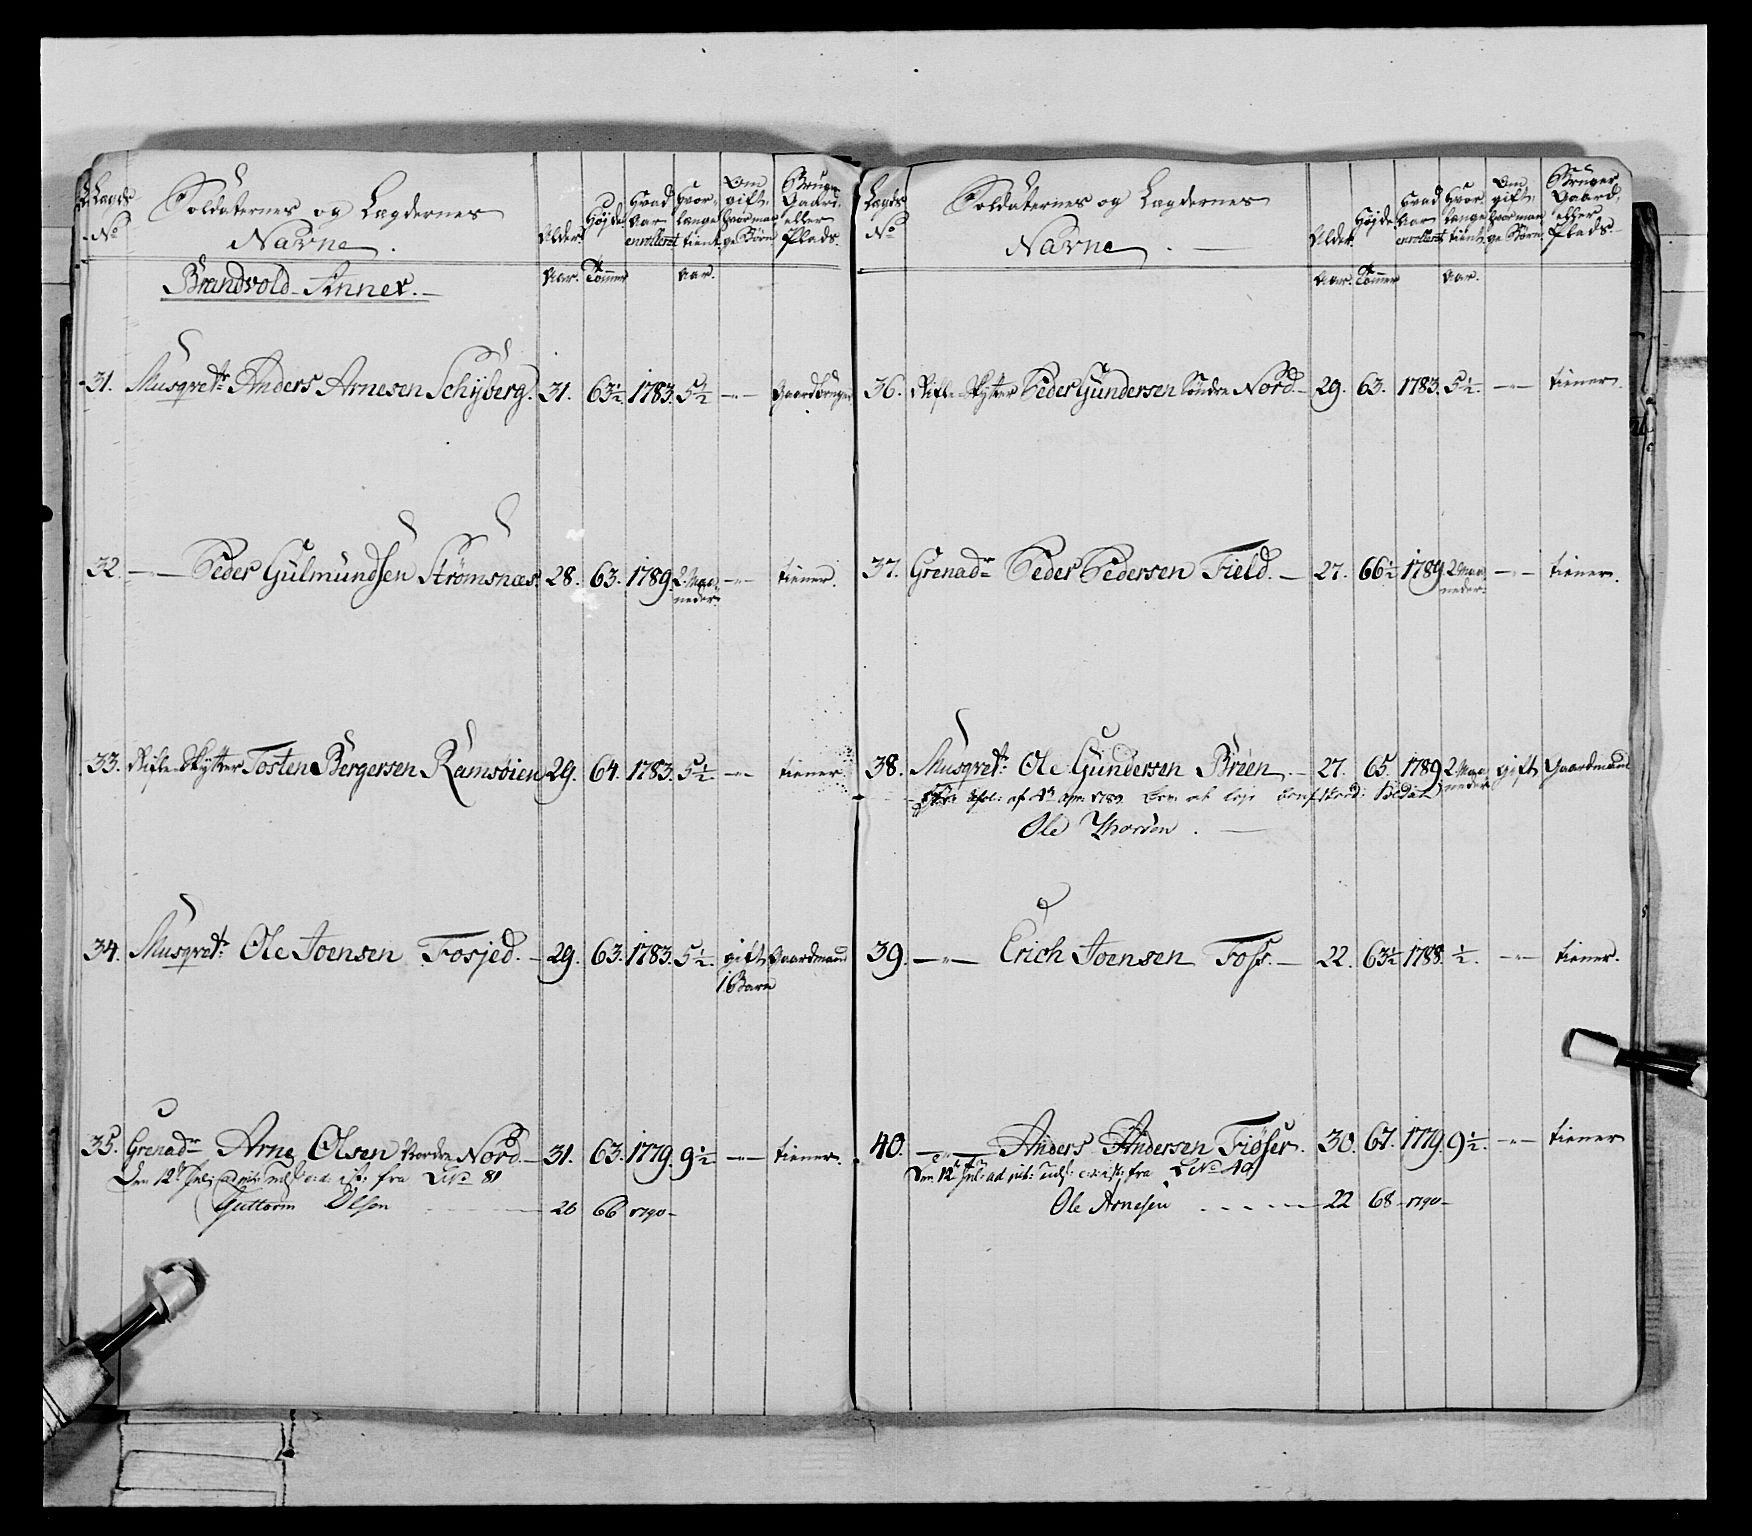 Lægds No
Soldaternes og Lægdernes Navne.
Alder.
Höjde
Hvad Aar enrolleret
Hvor længe tient
Om gift, hvor mange Börn
Bruger Gaard, eller Plads.
Aar. Tommer Aar.
Brandvold Annex.
31. Musqvetr Anders Arnesen Schyberg. 31. 63½. 1783. 5½ -"- Gaardbruger
32. -"- Peder Gulmundsen Strømsnæs. 28. 63. 1789. 2 Maa- -"- tiener.
neder.
33. Rifle Skytter Tosten Bergersen Ramsøien 29. 64. 1783. 5½. -"- tiener.
34. Musqvetr Ole Joensen Fosjed. 29. 63. 1783. 5½. gift Gaardmand
1 Barn
35. Grenadr Arne Olsen Nordre Nord. 31. 63. 1779. 9½ -"- tiener.
Den 12t Jul: fra LNo 81
Guttorm Olsen 26 66 1790
Lægds No
Soldaternes og Lægdernes Navne.
Alder.
Höjde
Hvad Aar enrolleret
Hvor længe tient
Om gift, hvor mange Börn
Bruger Gaard, eller Plads.
Aar. Tommer Aar.
36. Rifle Skytter Peder Gundersen Söndre Nord. 29. 63. 1783. 5½. -"- tiener.
37. Grenadr Peder Pedersen Field. 27. 66½ 1789 2 Maa- -"- tiener.
neder.
38. Musqvetr Ole Gundersen Brøen 27. 65. 1789 2 Maa- gift Gaardmand
neder
af 1789 Soldat
Ole
39. -"- Erich Joensen Foss. 22. 63½ 1788. ½. -"- tiener.
40. -"- Anders Andersen Fiøser. 30. 67. 1779. 9½. -"- tiener
Den 12t Jul: fra LNo
Ole Arnesen 22 68 1790